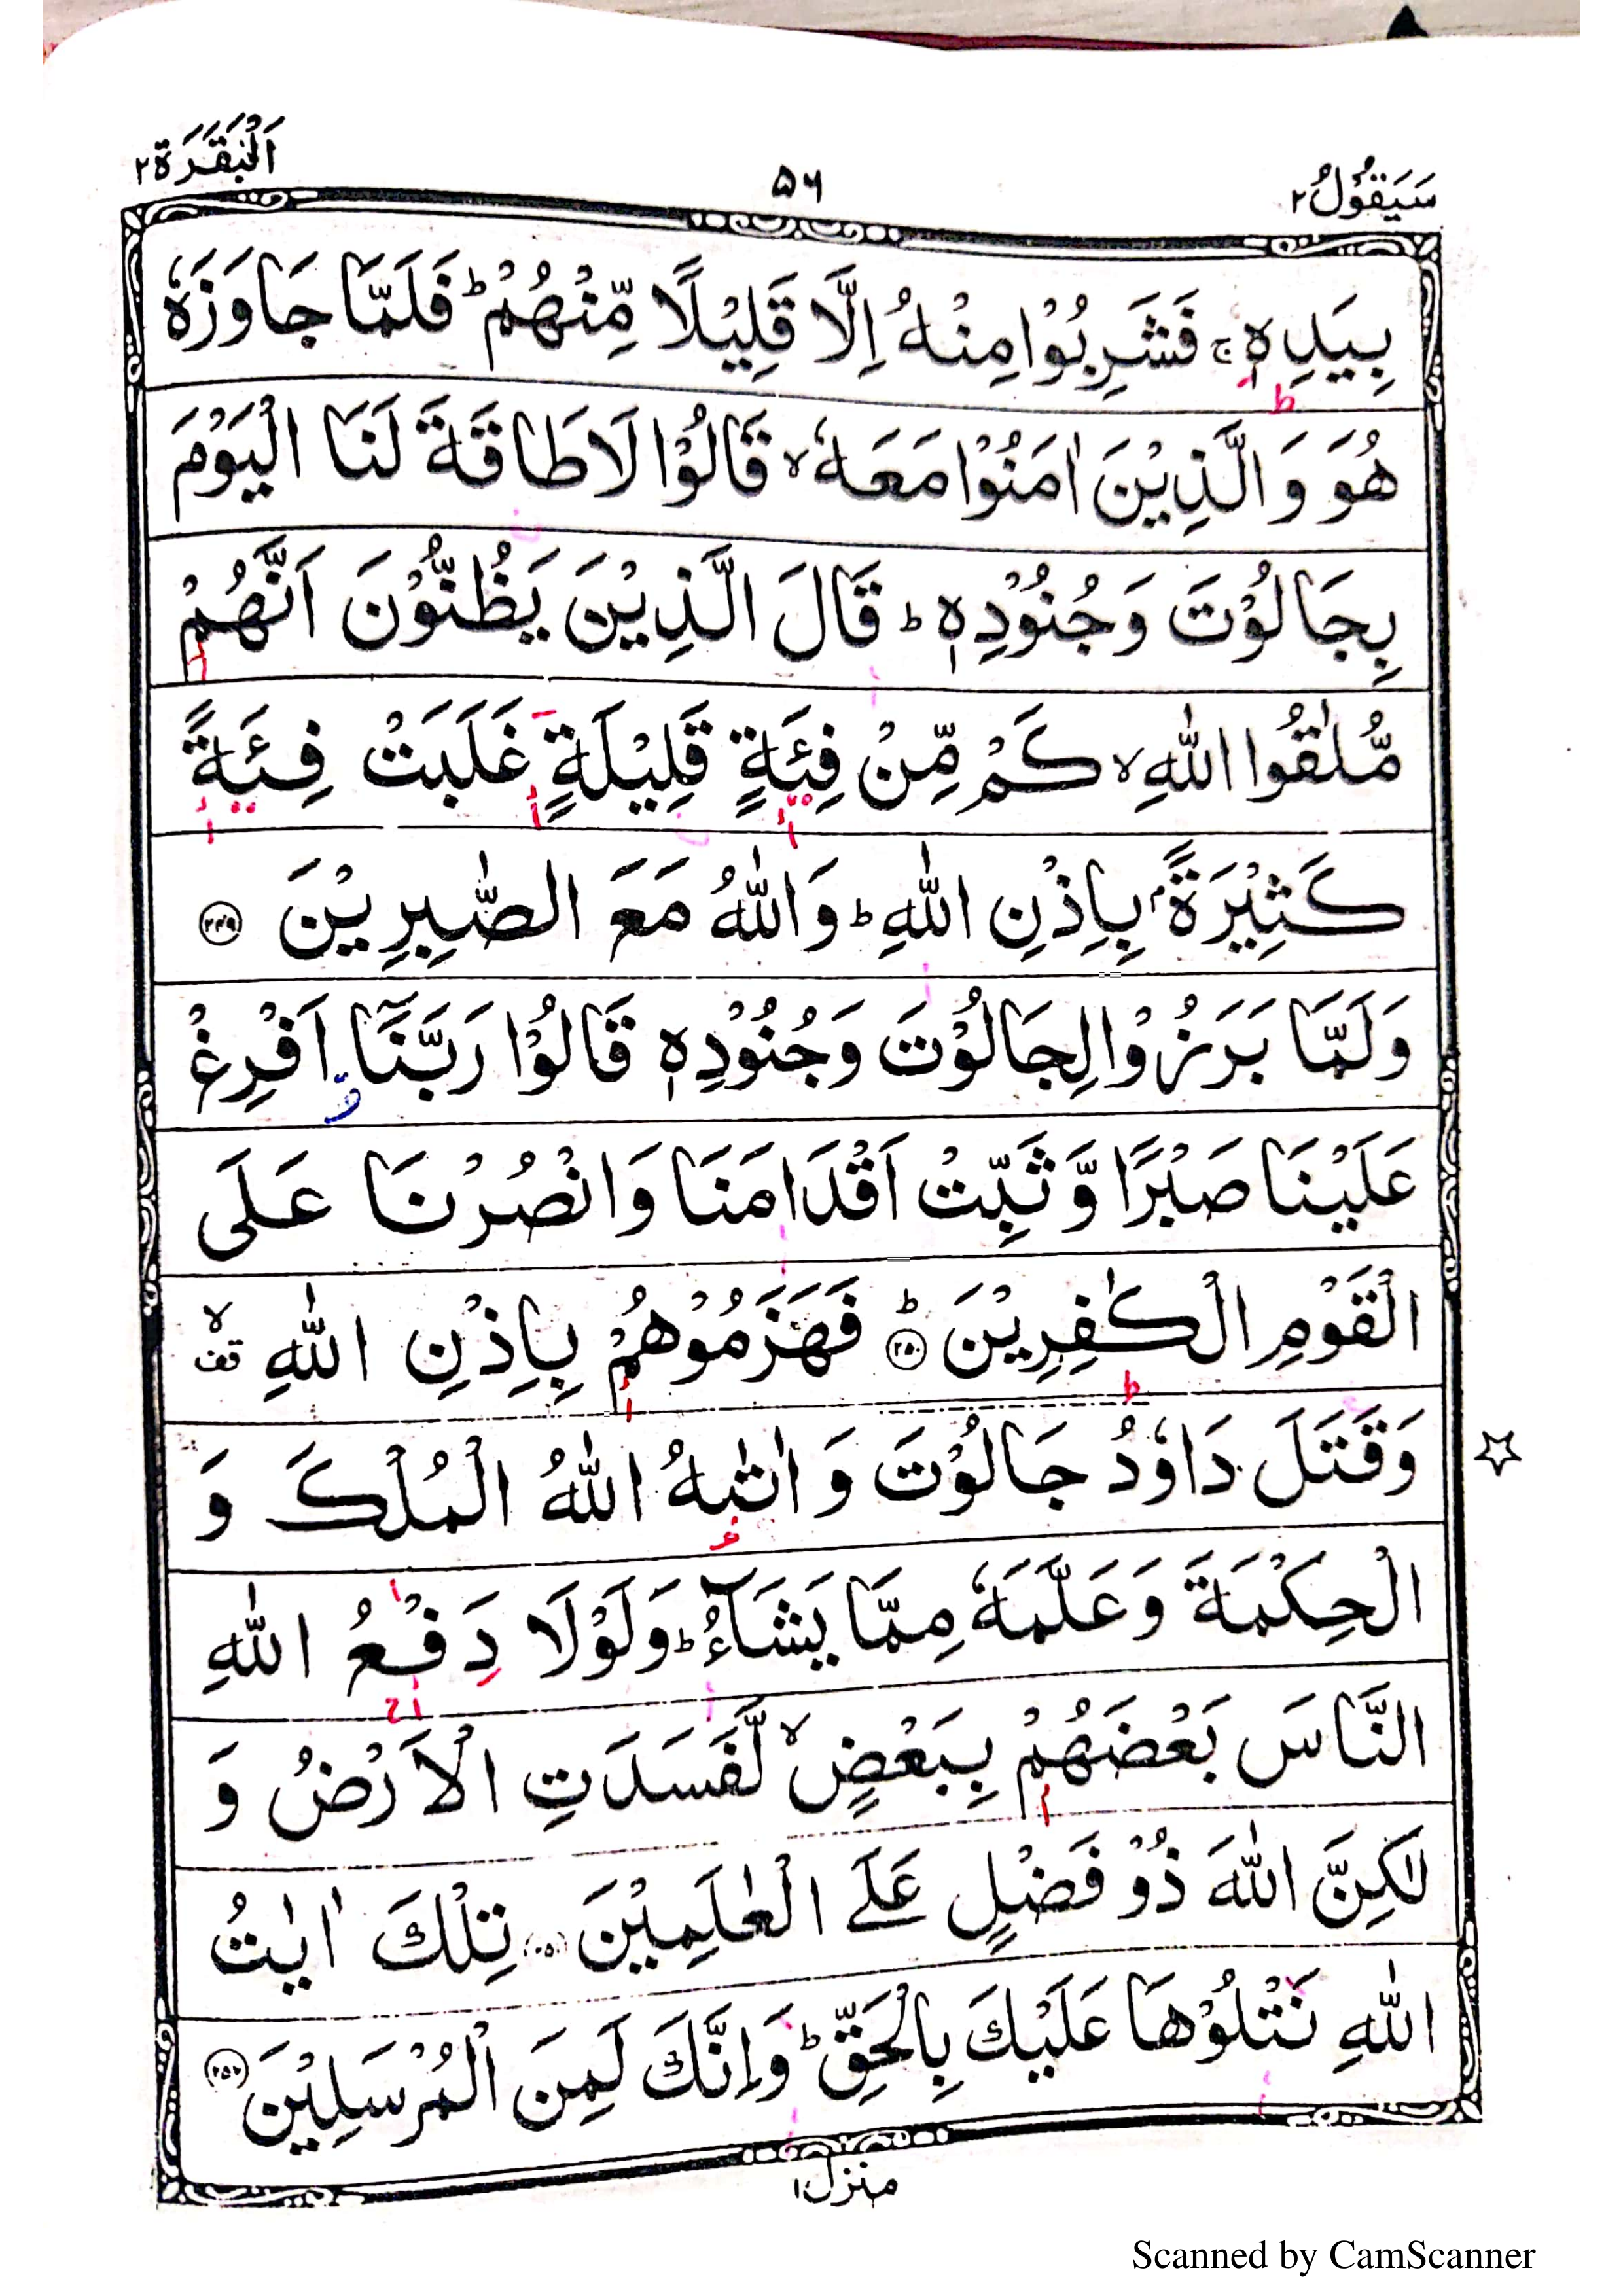 سَيَقُوْلُ ٢
٥٦
اَلْبَقَرَة ٢
بِيَدِهٖ ۚ فَشَرِبُوْا مِنْهُ اِلَّا قَلِيْلًا مِّنْهُمْ ؕ فَلَمَّا جَاوَزَهٗ
هُوَ وَ الَّذِيْنَ اٰمَنُوْا مَعَهٗ ۙ قَالُوْا لَا طَاقَةَ لَنَا الْيَوْمَ
بِجَالُوْتَ وَجُنُوْدِهٖ ؕ قَالَ الَّذِيْنَ يَظُنُّوْنَ اَنَّهُمْ
مُّلٰقُوا اللّٰهِ ۙ كَمْ مِّنْ فِئَةٍ قَلِيْلَةٍ غَلَبَتْ فِئَةً
كَثِيْرَةًۢ بِاِذْنِ اللّٰهِ ؕ وَاللّٰهُ مَعَ الصّٰبِرِيْنَ ٢٤٩
وَلَمَّا بَرَزُوْا لِجَالُوْتَ وَجُنُوْدِهٖ قَالُوْا رَبَّنَاۤ اَفْرِغْ
عَلَيْنَا صَبْرًا وَّ ثَبِّتْ اَقْدَامَنَا وَانْصُرْنَا عَلَى
الْقَوْمِ الْكٰفِرِيْنَ ؕ ٢٥٠ فَهَزَمُوْهُمْ بِاِذْنِ اللّٰهِ ۙ قف
وَقَتَلَ دَاوٗدُ جَالُوْتَ وَ اٰتٰىهُ اللّٰهُ الْمُلْكَ وَ
الْحِكْمَةَ وَعَلَّمَهٗ مِمَّا يَشَآءُ ؕ وَلَوْلَا دَفْعُ اللّٰهِ
النَّاسَ بَعْضَهُمْ بِبَعْضٍ ۙ لَّفَسَدَتِ الْاَرْضُ وَ
لٰكِنَّ اللّٰهَ ذُوْ فَضْلٍ عَلَى الْعٰلَمِيْنَ تِلْكَ اٰيٰتُ
اللّٰهِ نَتْلُوْهَا عَلَيْكَ بِالْحَقِّ ؕ وَاِنَّكَ لَمِنَ الْمُرْسَلِيْنَ ٢٥٢
منزل ١
Scanned by CamScanner